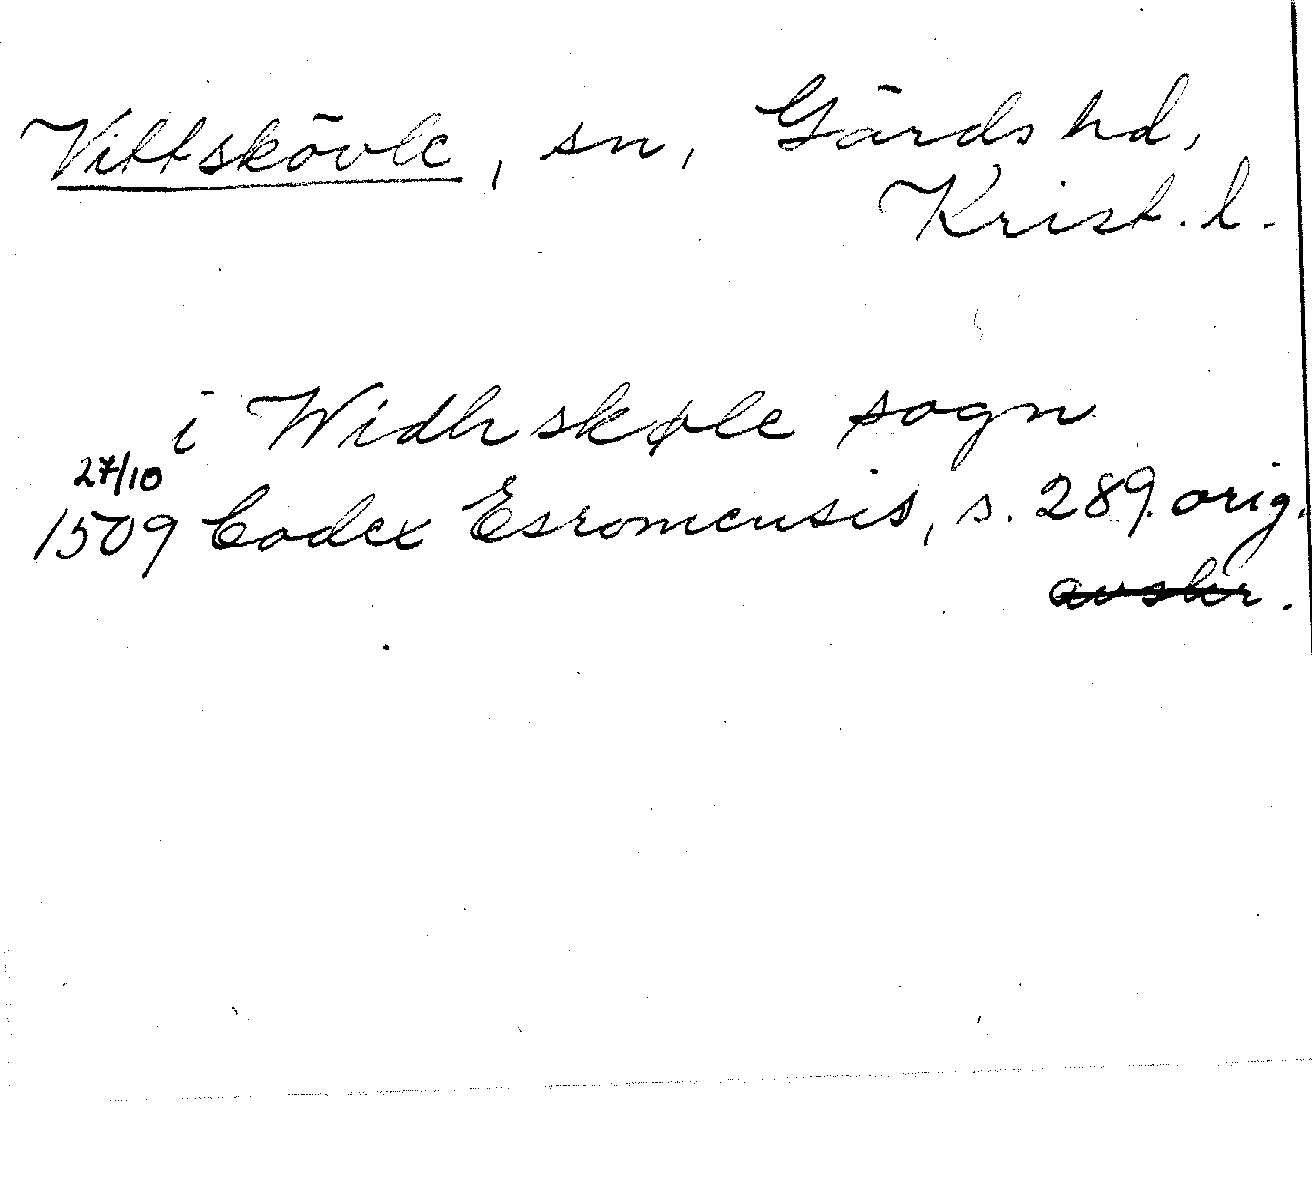 Vittskövle, sn, Gärds hd,
Krist. l.
i Widhskøle sogn
27/10
1509 Codex Esromensis, s. 289. orig.
avskr.